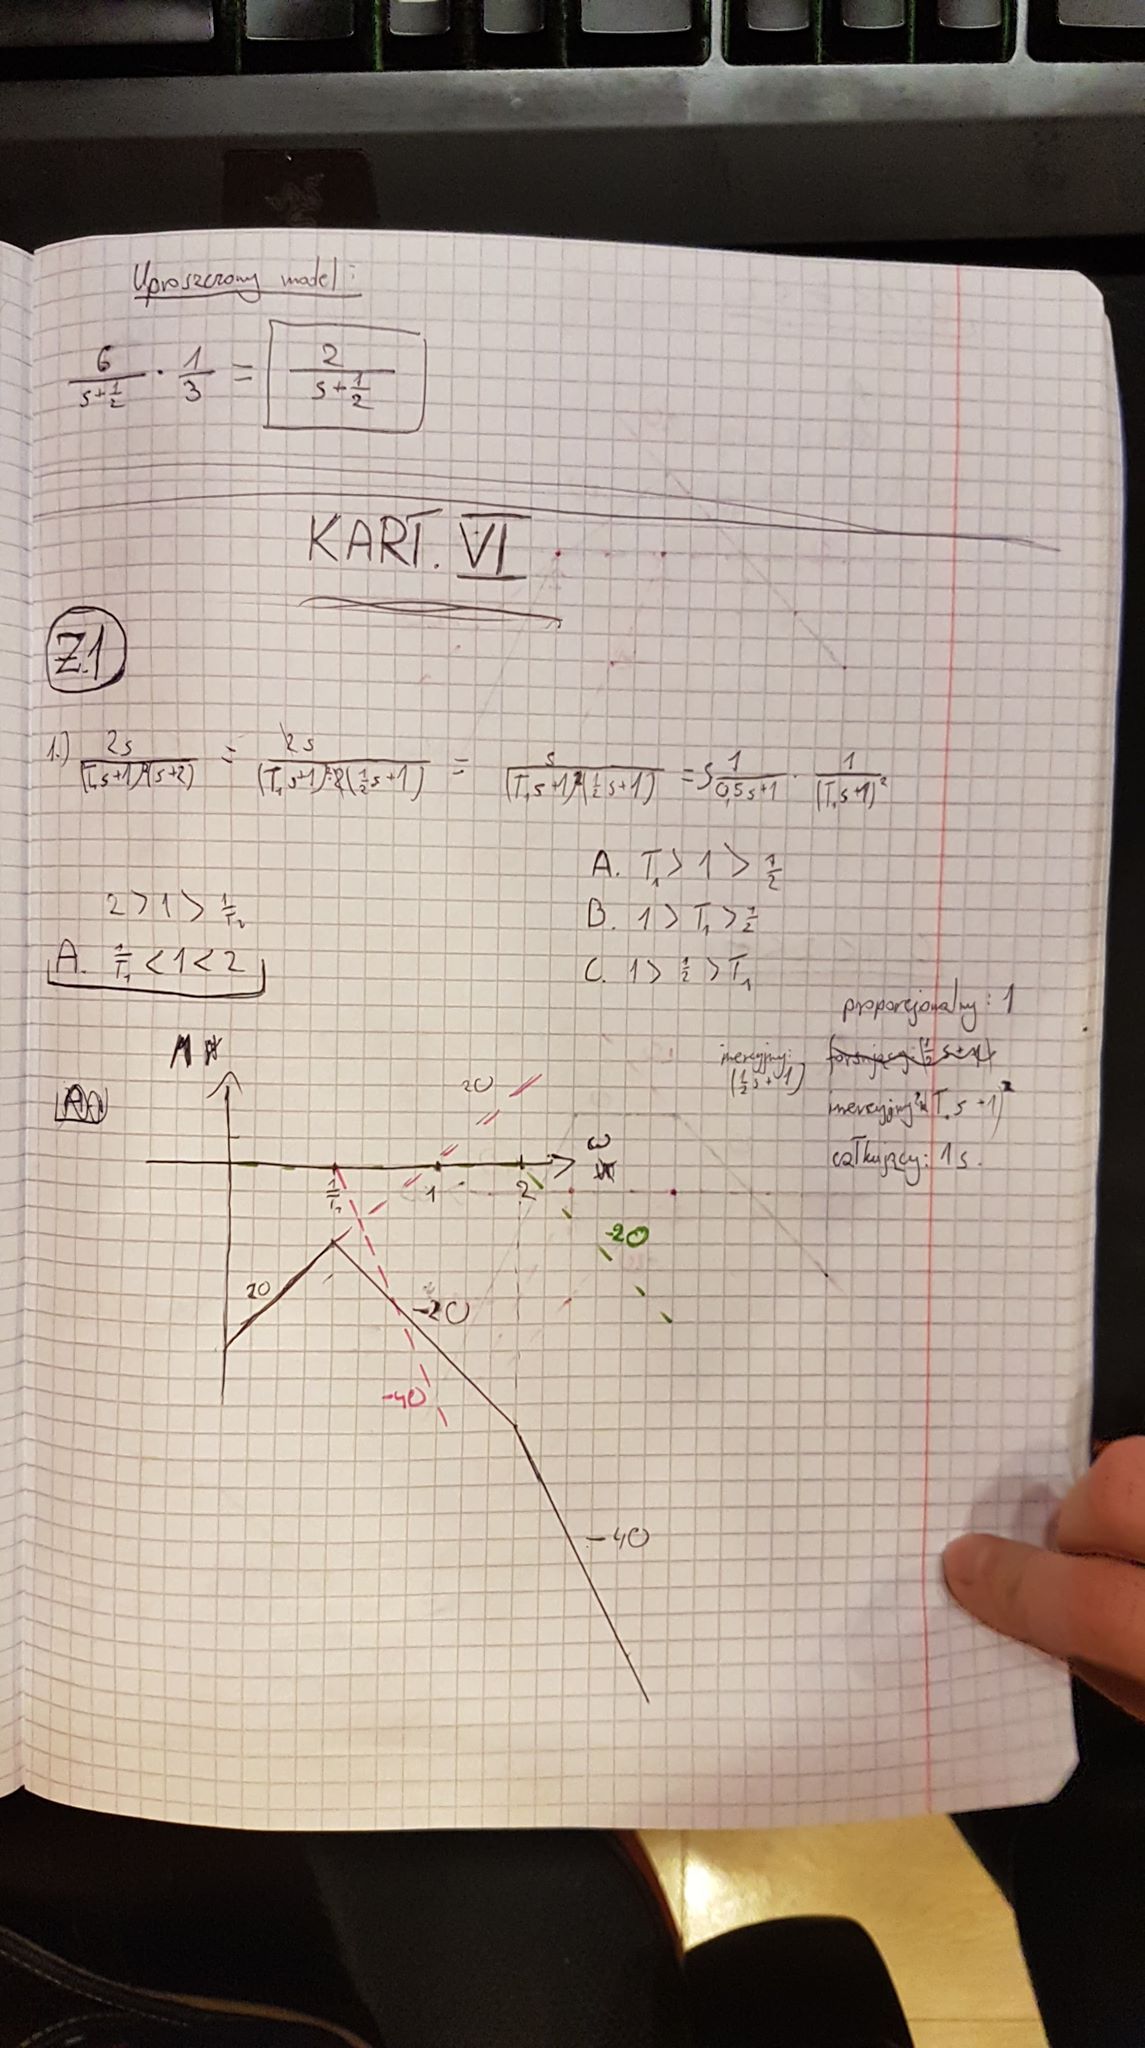 Uproszczony model:
6/(s+1/2) · 1/3 = 2/(s+1/2)
KART. VI
Z.1
1.) 2s/((T₁s+1)²(s+2)) = 2s/((T₁s+1)²·2(1/2s+1)) = s/((T₁s+1)²(1/2s+1)) = s 1/(0,5s+1) · 1/(T₁s+1)²
A. T₁ > 1 > 1/2
2 > 1 > 1/T₁
B. 1 > T₁ > 1/2
A. 1/T₁ < 1 < 2
C. 1 > 1/2 > T₁
proporcjonalny: 1
inercyjny: (1/2s+1)
inercyjny² (T₁s+1)²
całkujący: 1s.
M
A
20
ω
1/T₁
1
2
-20
20
-20
-40
-40